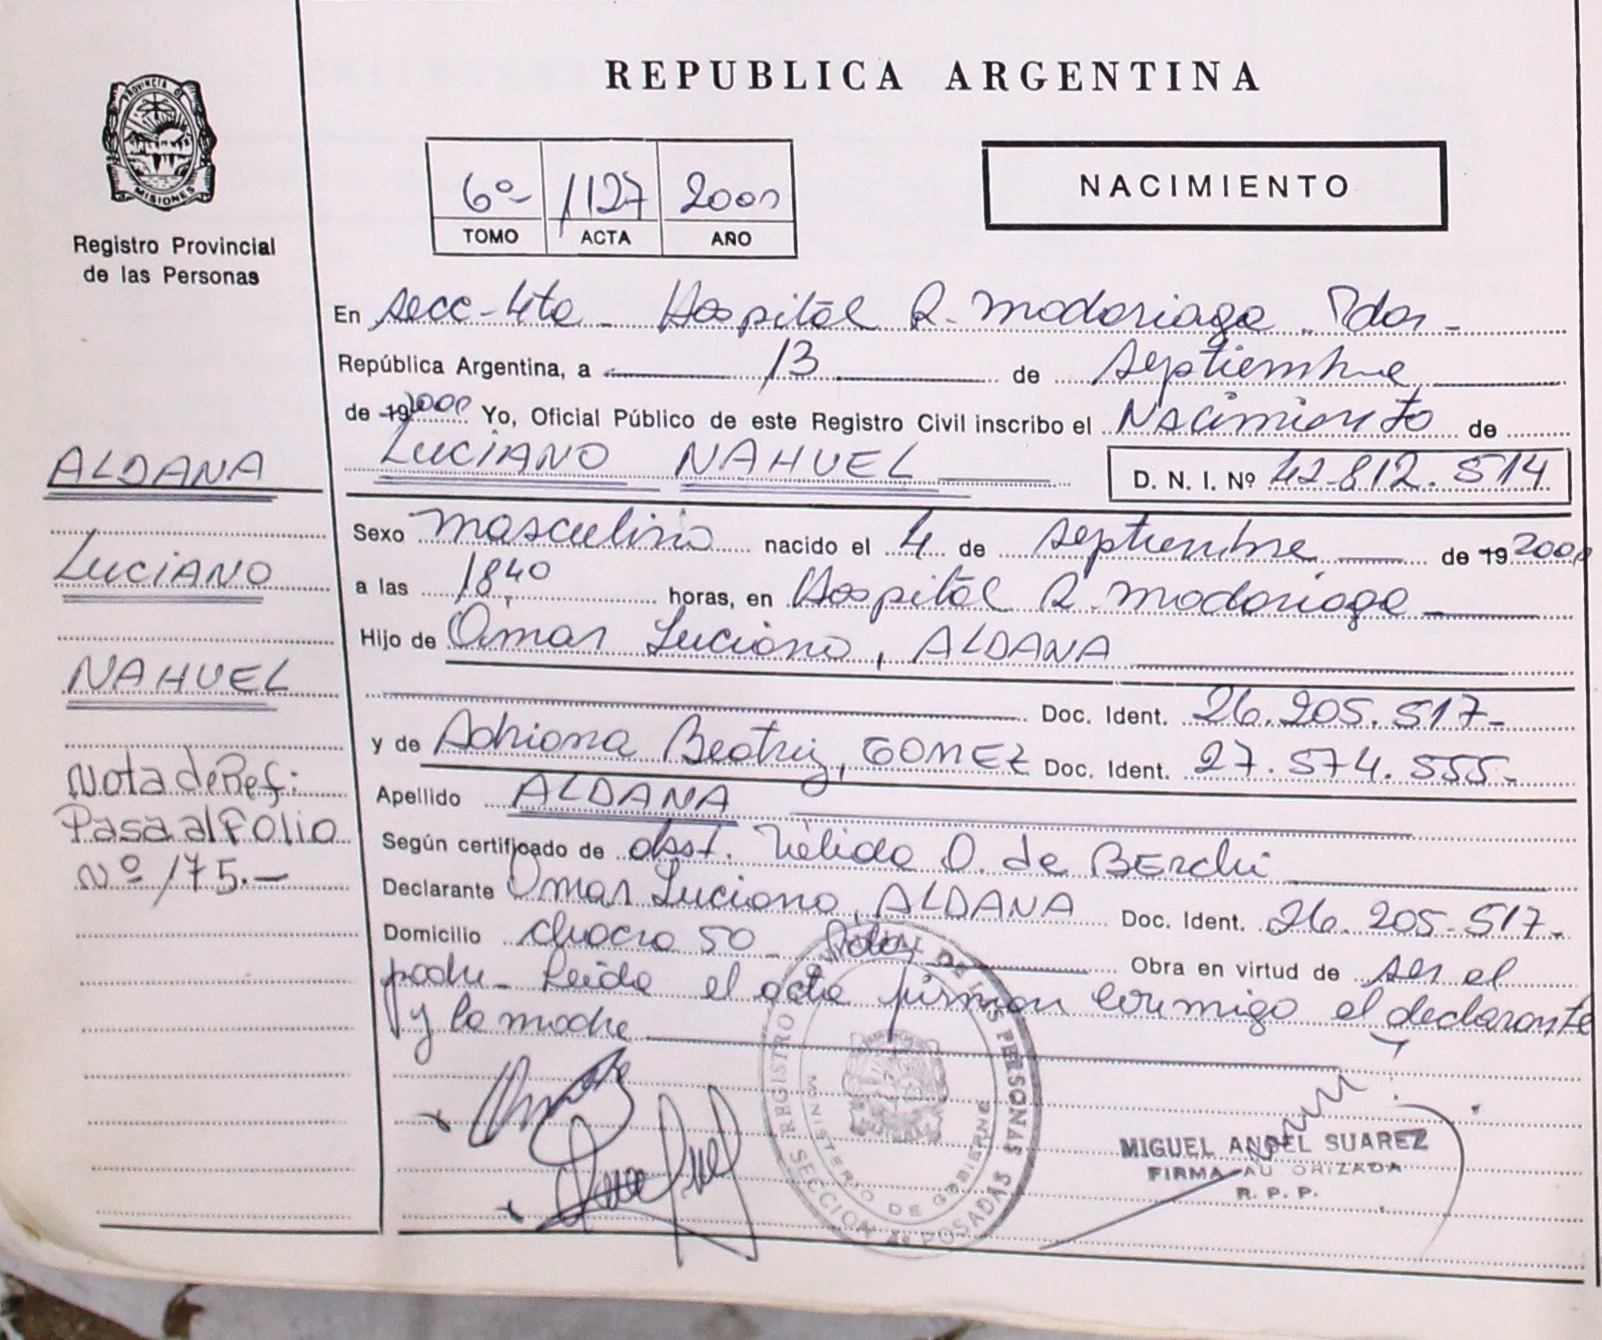 REPUBLICA ARGENTINA
PROVINCIA DE
MISIONES
Registro Provincial
de las Personas
6º 1127 2000
TOMO ACTA AÑO
NACIMIENTO
En Secc-4ta - Hospital R. Madariaga Pdas -
República Argentina, a 13 de Septiembre
de 19 2000 Yo, Oficial Público de este Registro Civil inscribo el Nacimiento de
LUCIANO NAHUEL D. N. I. Nº 42.812.514
Sexo masculino nacido el 4 de Septiembre de 19 2000
a las 18,40 horas, en Hospital R. Madariaga
Hijo de Omar Luciano, ALDANA
Doc. Ident. 26.205.517-
y de Adriana Beatriz, GOMEZ Doc. Ident. 27.574.555-
Apellido ALDANA
Según certificado de obst. Nélida O. de BERchi
Declarante Omar Luciano, ALDANA Doc. Ident. 26.205.517-
Domicilio chacra 50 - Pdas Obra en virtud de ser el
padre - Leida el acta firman conmigo el declarante
y la madre
ALDANA
LUCIANO
NAHUEL
Nota de Ref:
Pasa al Folio
Nº 175.-
REGISTRO DE LAS PERSONAS
MINISTERIO DE GOBIERNO
SECCION 4ª POSADAS
MIGUEL ANGEL SUAREZ
FIRMA AUTORIZADA
R. P. P.